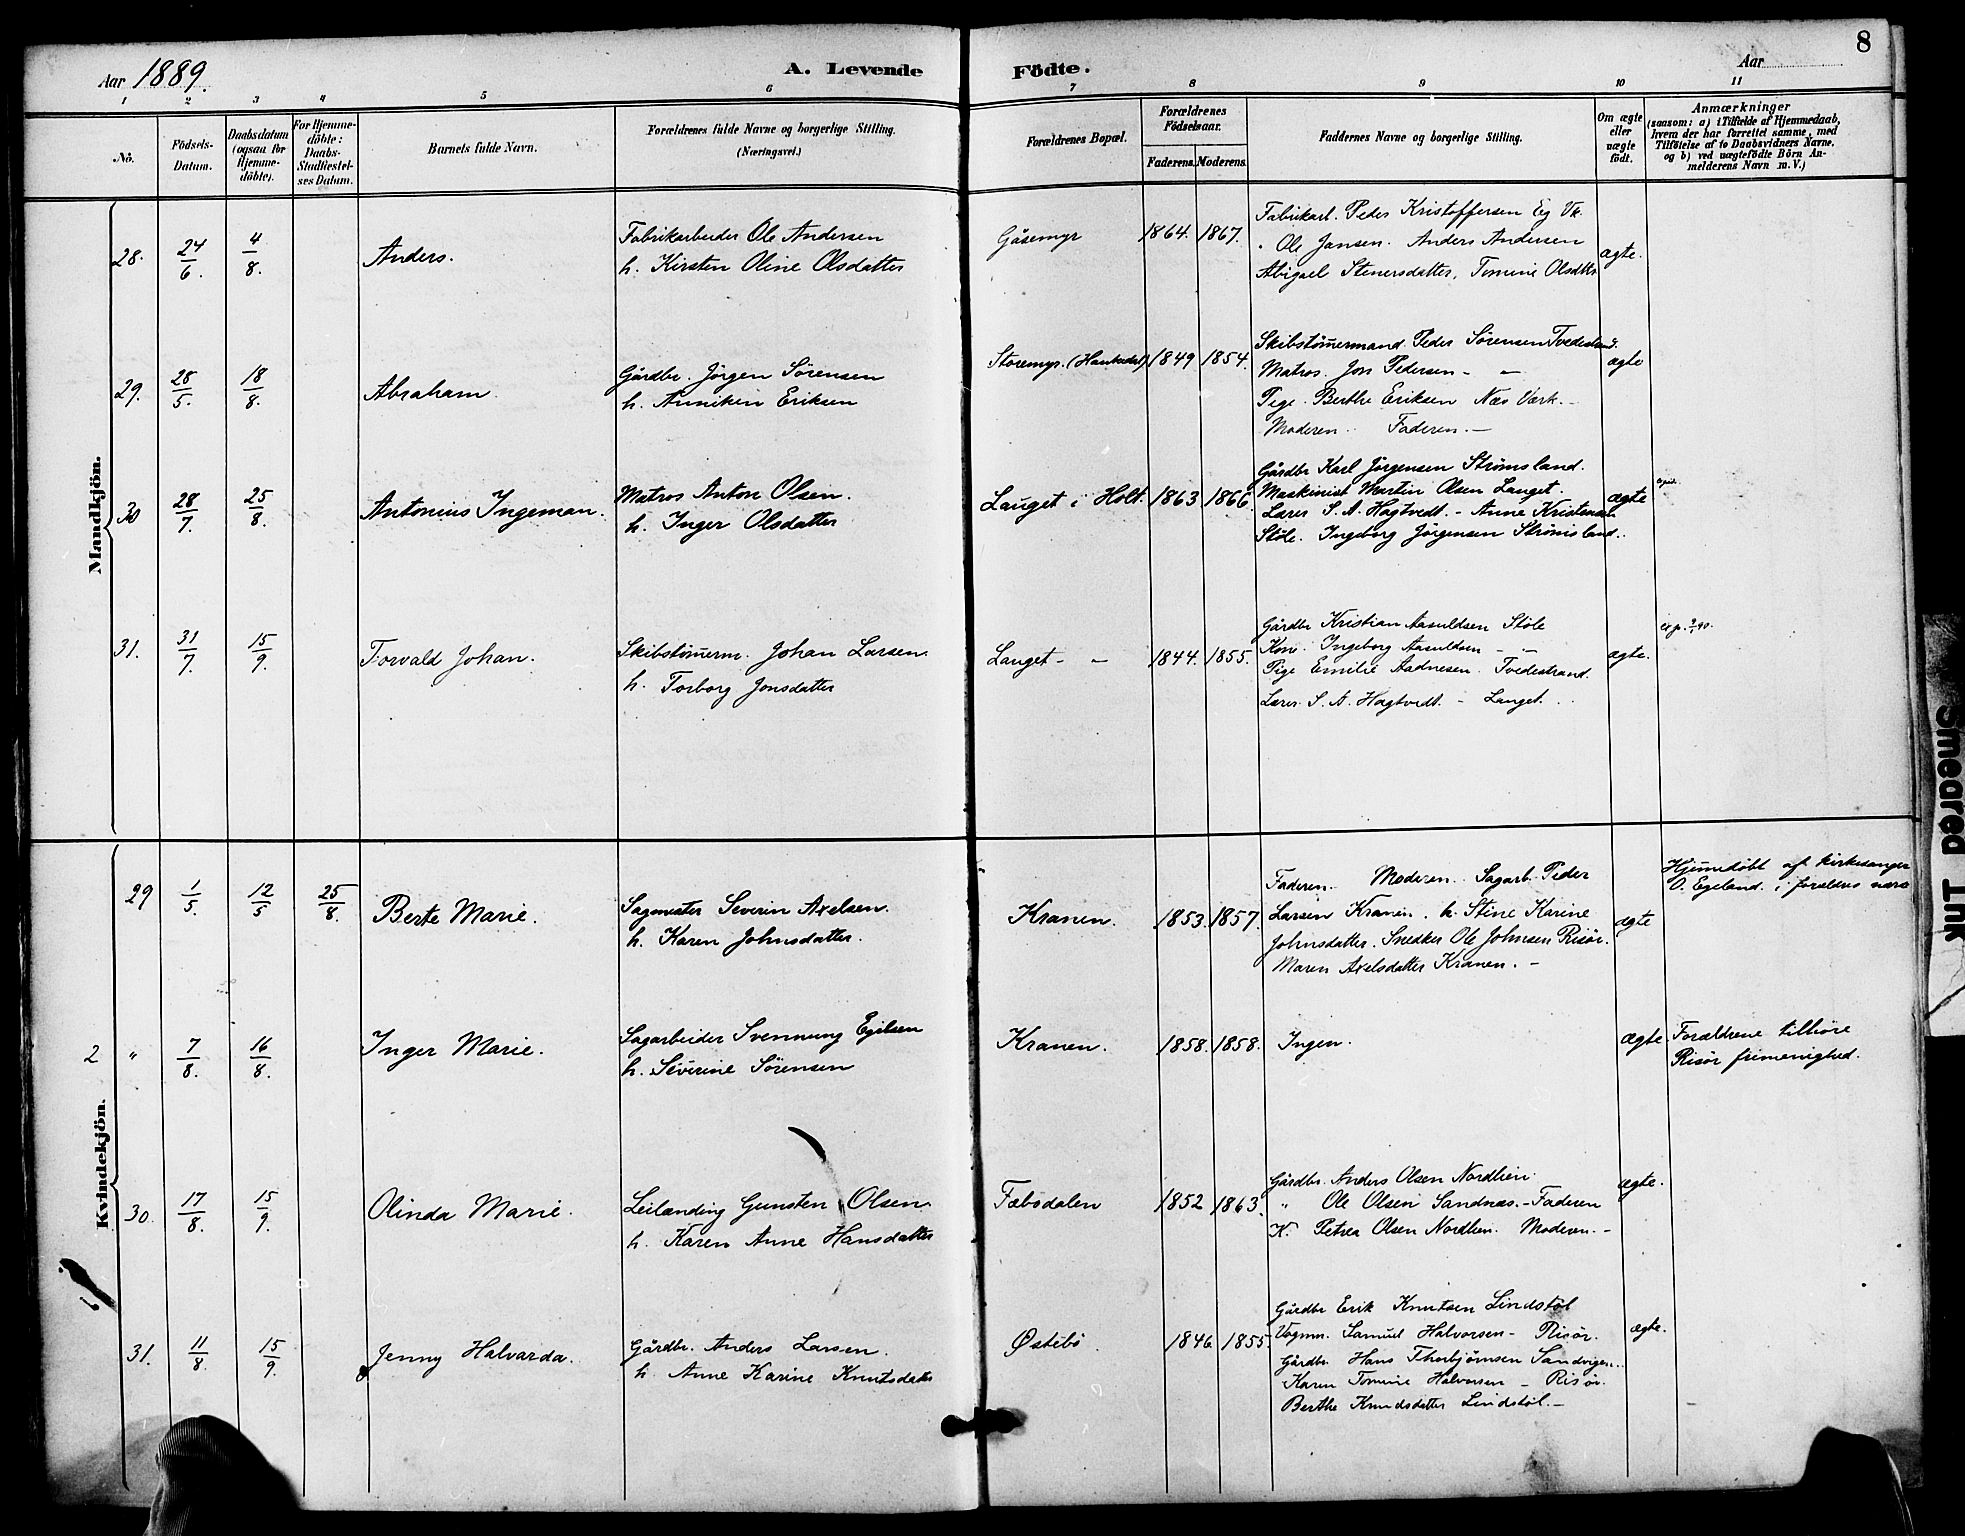 8
Aar 1889.
A. Levende Födte.
Aar
1 2 3 4 5 6 7 8 9 10 11
No.
Födsels-Datum.
Daabsdatum (ogsaa for Hjemme-döbte).
For Hjemme-döbte: Daabs-Stadfæstel-ses Datum.
Barnets fulde Navn.
Forældrenes fulde Navne og borgerlige Stilling. (Næringsvei.)
Forældrenes Bopæl.
Forældrenes Födselsaar.
Faderens. Moderens.
Faddernes Navne og borgerlige Stilling.
Om ægte eller uægte födt.
Anmærkninger
(saasom: a) i Tilfælde af Hjemmedaab, hvem der har forrettet samme, med Tilföielse af to Daabsvidners Navne, og b) ved uægtefödte Börn An-melderens Navn m. V.)
Mandkjön.
28. 24/6. 4/8. Anders.
Fabrikarbeider Ole Andersen
h. Kirsten Oline Olsdatter
Gåsemyr 1864. 1867.
Fabrikarb. Peder Kristoffersen Eg Vk.
" Ole Jansen. Anders Andersen
Abigael Stenersdatter, Tomine Olsdtter
ægte.
29. 28/5. 18/8. Abraham.
Gårdbr. Jörgen Sörensen
h. Anniken Eriksen
Storemyr. (Hankedal) 1849 1854.
Skibstømermand Peder Sørensen Tvedestrand.
Matros. Jon Pedersen - "
Pige. Berthe Eriksen Næs Værk.
Moderen.. Faderen.-
ægte
30 28/7. 25/8. Antonius Ingeman.
Matros Anton Olsen.
h. Inger Olsdatter
Lauget i Holt. 1863 1866.
Gårdbr Karl Jörgensen Strömsland.
Maskinist Martin Olsen Lauget.
Lærer S. A. Hagtvedt. - Anne Kristensen
Støle. Ingeborg Jörgensen Strömsland..
ægte
31. 31/7. 15/9. Torvald Johan.
Skibstömerm. Johan Larsen.
h. Torborg Jonsdatter
Lauget - " 1844. 1855.
Gårdbr Kristian Aasuldsen Støle
Kone. Ingeborg Aasuldsen - "
Pige Emilie Aadnesen. Tvedestrand.
Lærer S. A. Hagtvedt. - Lauget.
ægte.
Kvindekjön.
29 1/5. 12/5 25/8. Berte Marie.
Sagmester Severin Axelsen.
h. Karen Johnsdatter.
Kranen. 1853. 1857.
Faderen. Moderen. Sagarb. Peder
Larsen Kranen. h. Stine Karine
Johnsdatter. Snedker Ole Johnsen Risør.
Maren Axelsdatter Kranen. -
ægte
Hjemedøbt af kirkesanger
O. Egeland. i foreldres nærv
2 " 7/8. 16/8. Inger Marie.
Sagarbeider Svennung Egilsen
h. Severine Sörensen
Kranen. 1858. 1858.
Ingen.
ægte
Forældrene tilhöre
Risör frimenighed.
30. 17/8. 15/9. Olinda Marie.
Leilænding Gunsten Olsen.
h. Karen Anne Hansdatter
Fæbodalen 1852 1863.
Gårdbr. Anders Olsen Nordlien
" Ole Olsen Sandnæs. - Faderen
K. Petrea Olsen Nordlien. Moderen. -
ægte.
31. 11/8. 15/9. Jenny Halvarda.
Gårdbr. Anders Larsen.
h. Anne Karine Knutsdatter
Østebö. 1846. 1855.
Gårdbr Erik Knutsen Lindstøl
Vognm. Samuel Halvorsen - Risør.
Gårdbr. Hans Thorbjørnsen Sandvigen..
Karen Tomine Halvorsen - Risør.
Berthe Knudsdatter Lindstøl. -
ægte.
Smeared Ink